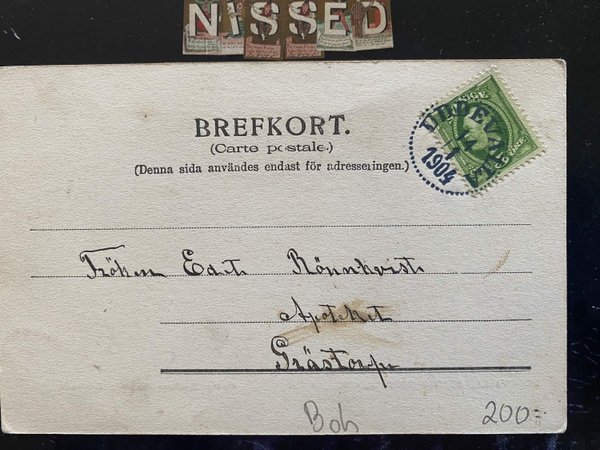 NISSED
BREFKORT.
(Carte postale.)
(Denna sida användes endast för adresseringen.)
UDDEVALLA
14
1904
Fröken Edit Rönnkvist
Apoteket
Grästorp
Boh
200:-